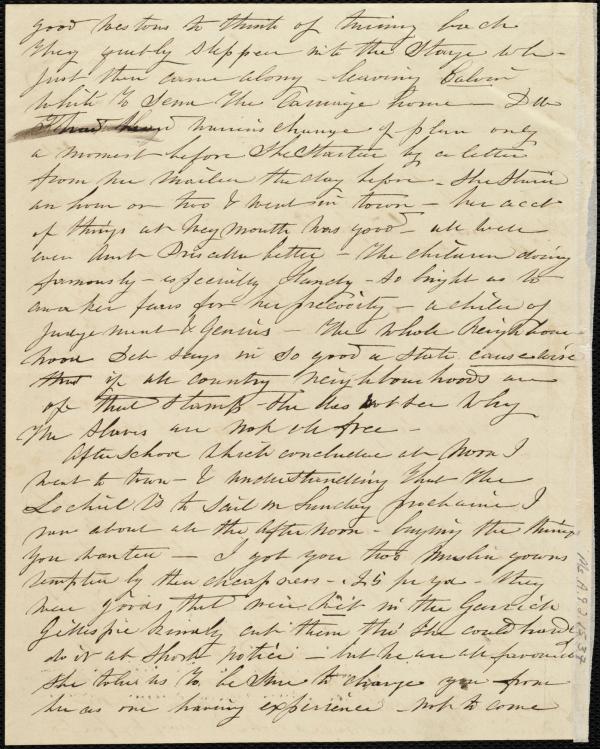 good Westons to think of turning back
they quietly stepped into the Stage wh-
just then came along - leaving Calvin
White to send the Carriage home - Deb
warnings change of plan only
a moment before she started by a letter
from me mailed the day before - She staid
an hour or two & went in town - her acct
of things at Weymouth was good - all well
even Aunt Priscilla better - the children doing
famously - especially Handy - so bright as to
awaken fears for her precocity - a child of
Judgement & Genius - The whole Neighbour
hood Deb says in so good a State cause-wise
that if all country neighbourhoods are
of that stamp - she does not see why
the slaves are not all free -
After School which concluded at Noon I
went to town - & understanding that the
Lochiel is to sail on Sunday prochaine I
ran about all the afternoon - buying the things
you wanted - I got you two Muslin gowns
tempted by their cheapness - .25 pr yd - they
were goods that were in the Garrick
Gillespie kindly cut them tho' she could hardly
do it at short notice - but we are all favoured
she told us to be sure to charge you from
her as one having experience - not to come
M.A.9.2.15.37